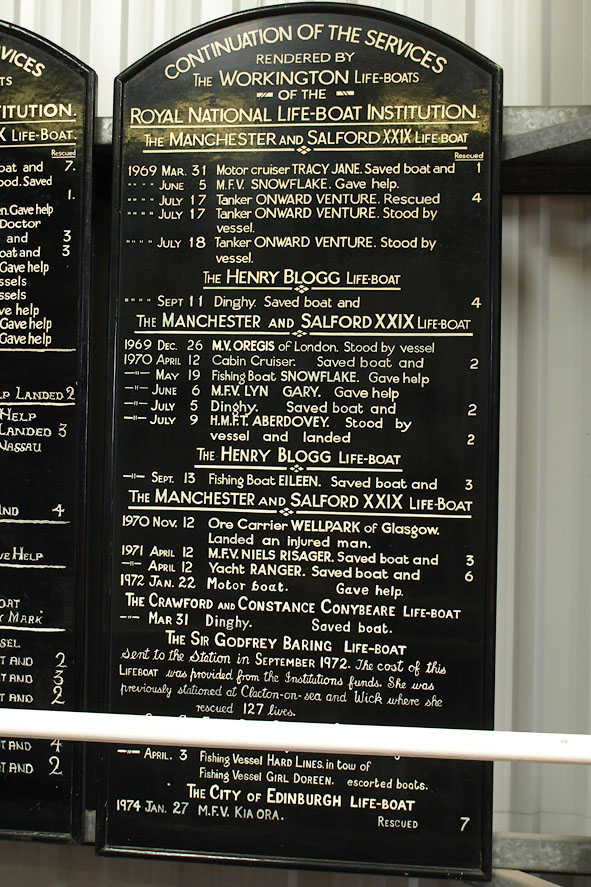 VICES
TS
TITUTION.
X LIFE-BOAT.
Rescued
oat and 7.
ood. Saved
1.
en. Gave help
Doctor
and 3
oat and 3
Gave help
ssels
ssels
ve help
Gave help
Gave help
LP LANDED 2
HELP
LANDED 3
NASSAU
AND 4
VE HELP
OAT
Y MARK
SSEL
T AND 2
T AND 3
T AND 2
T AND 4
T AND 2
CONTINUATION OF THE SERVICES
RENDERED BY
THE WORKINGTON LIFE-BOATS
OF THE
ROYAL NATIONAL LIFE-BOAT INSTITUTION.
THE MANCHESTER AND SALFORD XXIX LIFE-BOAT
Rescued
1969 MAR. 31 Motor cruiser TRACY JANE. Saved boat and 1
" " " " JUNE 5 M.F.V. SNOWFLAKE. Gave help.
" " " " JULY 17 Tanker ONWARD VENTURE. Rescued 4
" " " " JULY 17 Tanker ONWARD VENTURE. Stood by
vessel.
" " " " JULY 18 Tanker ONWARD VENTURE. Stood by
vessel.
THE HENRY BLOGG LIFE-BOAT
" " " " SEPT 11 Dinghy. Saved boat and 4
THE MANCHESTER AND SALFORD XXIX LIFE-BOAT
1969 DEC. 26 M.V. OREGIS of London. Stood by vessel
1970 APRIL 12 Cabin Cruiser. Saved boat and 2
—"— MAY 19 Fishing Boat SNOWFLAKE. Gave help
—"— JUNE 6 M.F.V. LYN GARY. Gave help
—"— JULY 5 Dinghy. Saved boat and 2
—"— JULY 9 H.M.F.T. ABERDOVEY. Stood by
vessel and landed 2
THE HENRY BLOGG LIFE-BOAT
—"— SEPT. 13 Fishing Boat EILEEN. Saved boat and 3
THE MANCHESTER AND SALFORD XXIX LIFE-BOAT
1970 NOV. 12 Ore Carrier WELLPARK of Glasgow.
Landed an injured man.
1971 APRIL 12 M.F.V. NIELS RISAGER. Saved boat and 3
—"— APRIL 12 Yacht RANGER. Saved boat and 6
1972 JAN. 22 Motor boat. Gave help.
THE CRAWFORD AND CONSTANCE CONYBEARE LIFE-BOAT
—"— MAR 31 Dinghy. Saved boat.
THE SIR GODFREY BARING LIFE-BOAT
Sent to the Station in SEPTEMBER 1972. The cost of this
LIFEBOAT was provided from the Institutions funds. She was
previously stationed at Clacton-on-sea and Wick where she
rescued 127 lives.
—"— APRIL. 3 Fishing Vessel HARD LINES. in tow of
Fishing Vessel GIRL DOREEN. escorted boats.
THE CITY OF EDINBURGH LIFE-BOAT
1974 JAN. 27 M.F.V. KIA ORA. RESCUED 7